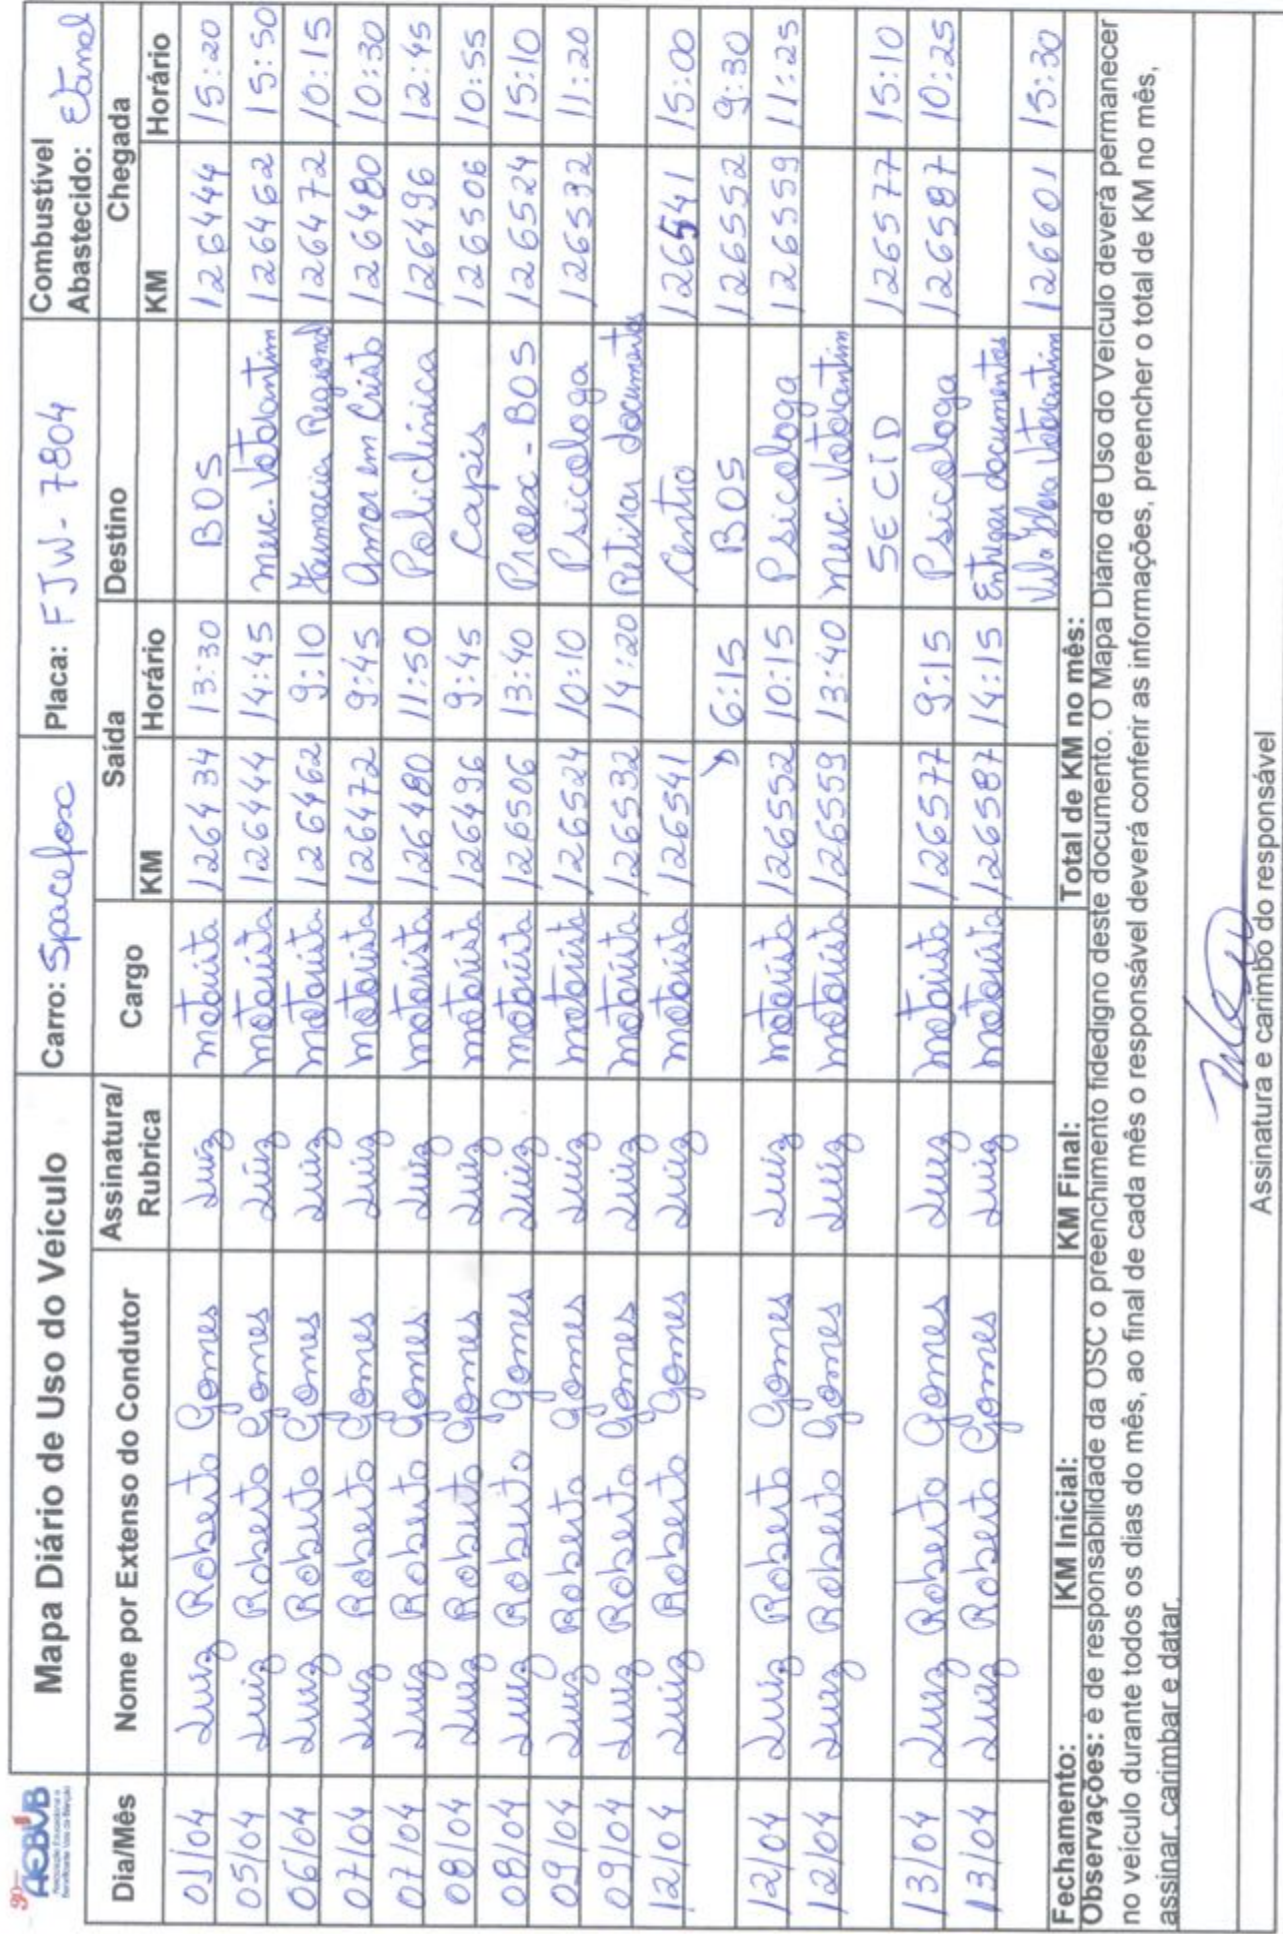 90 AEBVB
Mapa Diário de Uso do Veículo Carro: Spacefox Placa: FJW-7804 Combustível Abastecido: Etanol
Dia/Mês Nome por Extenso do Condutor Assinatura/ Rubrica Cargo Saída Destino Chegada
KM Horário KM Horário
01/04 Luiz Roberto Gomes Luiz motorista 126434 13:30 BOS 126444 15:20
05/04 Luiz Roberto Gomes Luiz motorista 126444 14:45 Merc. Votorantim 126462 15:50
06/04 Luiz Roberto Gomes Luiz motorista 126462 9:10 Farmacia Regional 126472 10:15
07/04 Luiz Roberto Gomes Luiz motorista 126472 9:45 Amor em Cristo 126480 10:30
07/04 Luiz Roberto Gomes Luiz motorista 126480 11:50 Policlínica 126496 12:45
08/04 Luiz Roberto Gomes Luiz motorista 126496 9:45 Capis 126506 10:55
08/04 Luiz Roberto Gomes Luiz motorista 126506 13:40 Proex - BOS 126524 15:10
09/04 Luiz Roberto Gomes Luiz motorista 126524 10:10 Psicologa 126532 11:20
09/04 Luiz Roberto Gomes Luiz motorista 126532 14:20 Retirar documentos
12/04 Luiz Roberto Gomes Luiz motorista 126541 Centro 126541 15:00
6:15 BOS 126552 9:30
12/04 Luiz Roberto Gomes Luiz motorista 126552 10:15 Psicologa 126559 11:25
12/04 Luiz Roberto Gomes Luiz motorista 126559 13:40 Merc. Votorantim
SECID 126577 15:10
13/04 Luiz Roberto Gomes Luiz motorista 126577 9:15 Psicologa 126587 10:25
13/04 Luiz Roberto Gomes Luiz motorista 126587 14:15 Entregar documentos
Votorantim 126601 15:30
Fechamento: KM Inicial: KM Final: Total de KM no mês:
Observações: é de responsabilidade da OSC o preenchimento fidedigno deste documento. O Mapa Diário de Uso do Veículo deverá permanecer
no veículo durante todos os dias do mês, ao final de cada mês o responsável deverá conferir as informações, preencher o total de KM no mês,
assinar, carimbar e datar.
Assinatura e carimbo do responsável